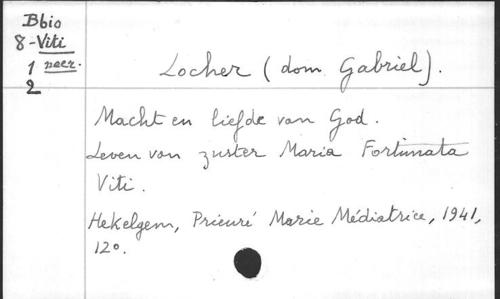 Bbio
8-Viti
1 neer.
2
Locher (dom Gabriel).
Macht en liefde van God.
Leven van zuster Maria Fortunata
Viti.
Hekelgem, Prieuré Marie Médiatrice, 1941,
12°.